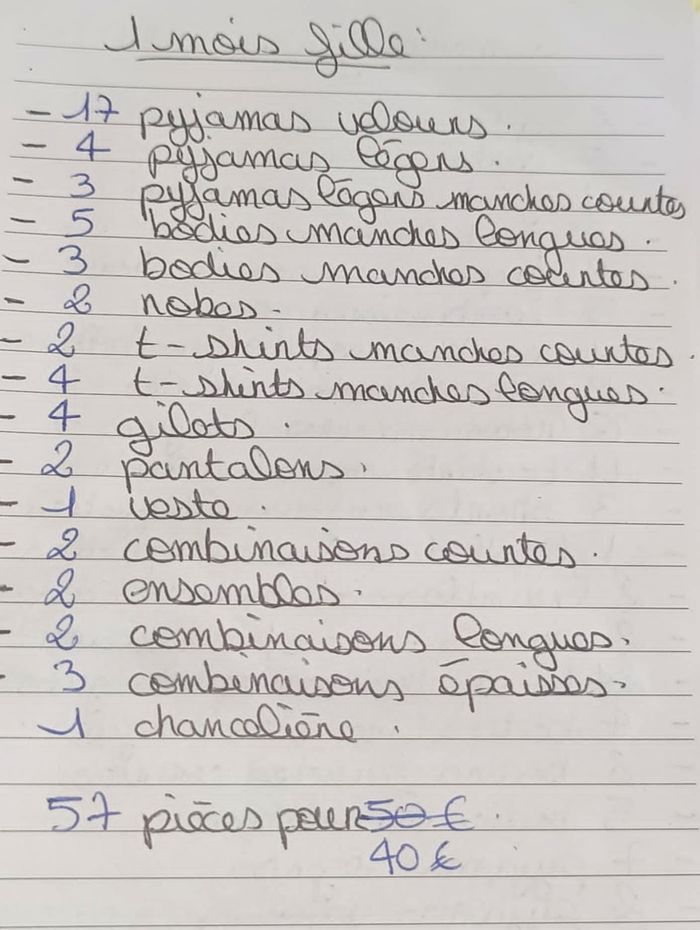 1 mois fille :
- 17 pyjamas velours.
- 4 pyjamas légers.
- 3 pyjamas légers manches courtes
- 5 bodies manches longues.
- 3 bodies manches courtes.
- 2 robes.
- 2 t-shirts manches courtes.
- 4 t-shirts manches longues.
- 4 gilets.
- 2 pantalons.
- 1 veste.
- 2 combinaisons courtes.
- 2 ensembles.
- 2 combinaisons longues.
- 3 combinaisons épaisses.
1 chancelière.
57 pièces pour 50 €.
40 €